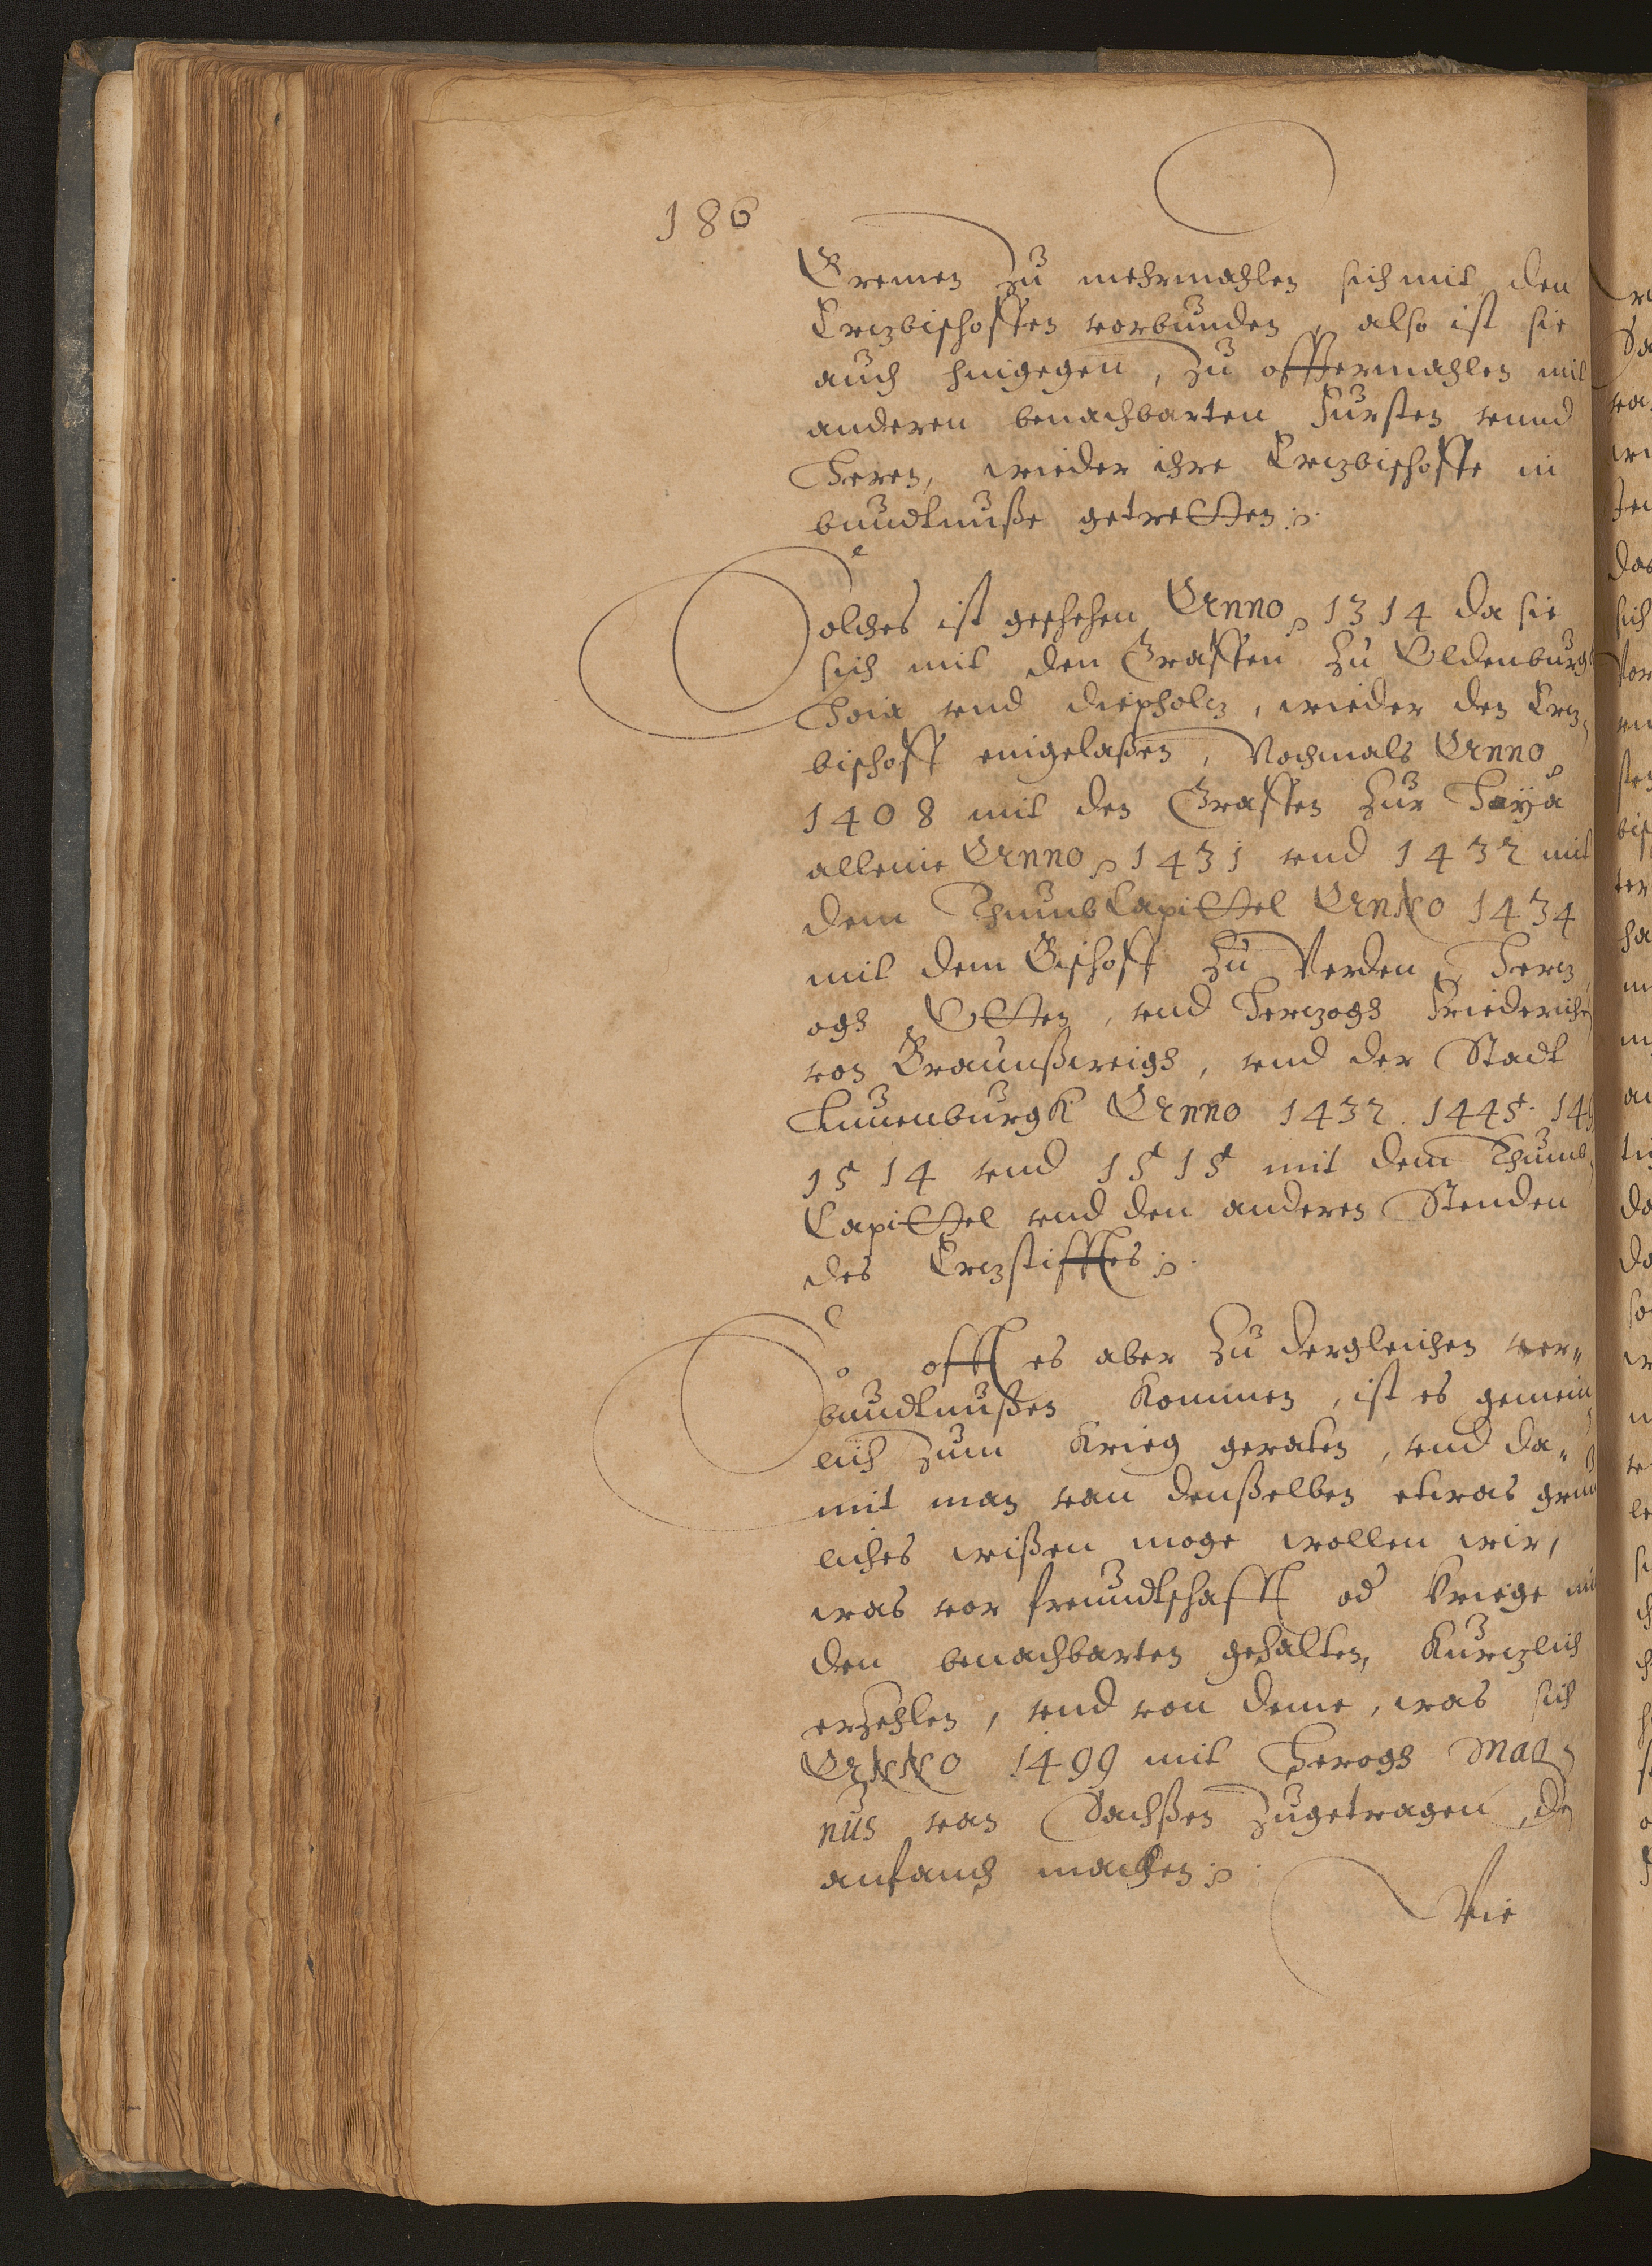 186
Bremen zu mehrmahlen sich mit den
Ertzbischoffen vorbunden, also ist sie
auch hingegen, zu offtermahlen mit
anderen benachbarten Fursten vnnd
Heren, wieder ihre Ertzbischoffe in
bundtnuße getretten.
Solches ist geschehen Anno 1314 da sie
sich mit den Graffen zu Oldenburg
Hoia vnd diepholtz, wieder den Ertz,
bischoff eingelaßen, Nochmals Anno
1408 mit den Graffen zur Hoya
alleine Anno 1431 vnd 1432 mit
dem Thumb Capittel Anno 1434
mit dem Bischoff zu Verden Hertz
ogh Otten, vnd Hertzogh Friederiche
von Braunßweigh, vnd der Stadt
Luneburgk Anno 1432. 1445. 14
1514 vnd 1515 mit dem Thumb,
Capittel vnd den anderen Stenden
des Ertzstifftes.
So offt es aber zu dergleichen ver„
bundtnußen kommen, ist es gemein,
lich zum Krieg geraten, vnd da„
mit man van denßelben etwas grun
liches wißen moge wollen wir,
was vor freundtschafft od Kriege mit
den benachbarten gehalten, kurtzlich
erzehlen, vnd von deme, was sich
Anno 1499 mit Herogh Mag,
nus van Sachßen zugetragen, den
anfanch machen.
Wie